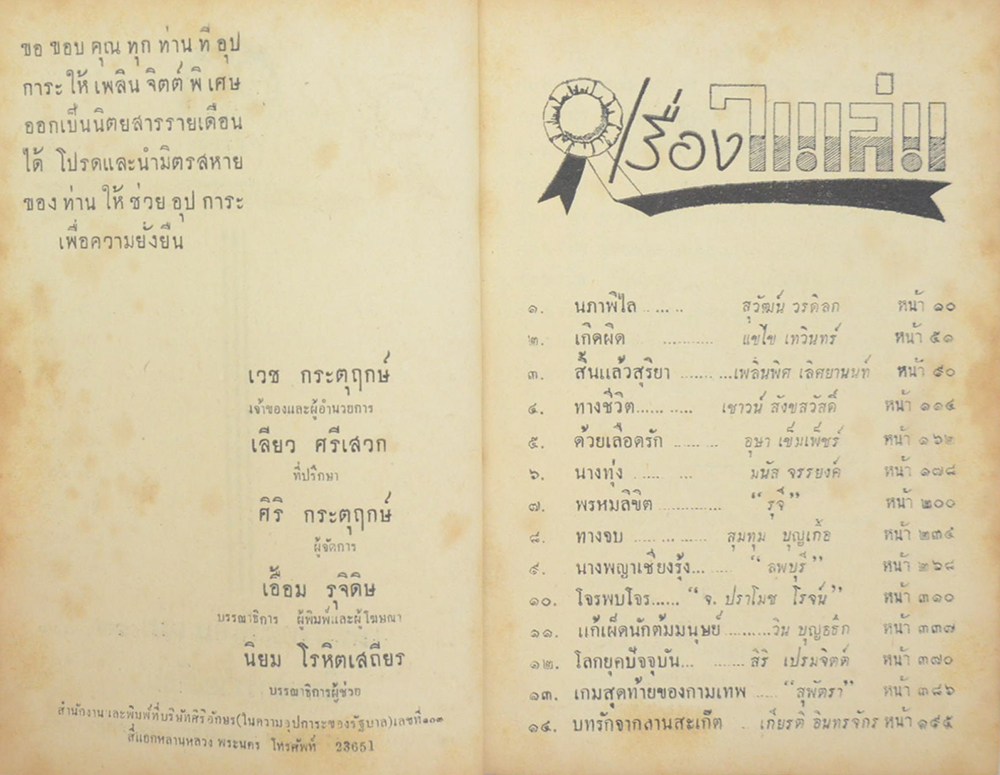 ขอ ขอบ คุณ ทุก ท่าน ที่ อุป
การะ ให้ เพลิน จิตต์ พิ เศษ
ออกเป็นนิตยสารรายเดือน
ได้ โปรดและนำมิตรสหาย
ของ ท่าน ให้ ช่วย อุป การะ
เพื่อความยั่งยืน
เวช กระตุฤกษ์
เจ้าของและผู้อำนวยการ
เลียว ศรีเสวก
ที่ปรึกษา
ศิริ กระตุฤกษ์
ผู้จัดการ
เอื้อม รุจิดิษ
บรรณาธิการ ผู้พิมพ์และผู้โฆษณา
นิยม โรหิตเสถียร
บรรณาธิการผู้ช่วย
สำนักงานและพิมพ์ที่บริษัทศิริอักษร(ในความอุปการะของรัฐบาล)เลขที่๑๐๓
สี่แยกหลานหลวง พระนคร โทรศัพท์ 23651
เรื่องในเล่ม
๑. นภาพิไล ... สุวัฒน์ วรดิลก หน้า ๑๐
๒. เกิดผิด ... แขไข เทวินทร์ หน้า ๕๑
๓. สิ้นแล้วสุริยา ... เพลินพิศ เลิศยานนท์ หน้า ๙๐
๔. ทางชีวิต ... เชาวน์ สังขสวัสดิ์ หน้า ๑๑๔
๕. ด้วยเลือดรัก ... อุษา เข็มเพ็ชร์ หน้า ๑๖๒
๖. นางทุ่ง ... มนัส จรรยงค์ หน้า ๑๗๘
๗. พรหมลิขิต ... “รุจี” หน้า ๒๐๐
๘. ทางจบ ... สุมทุม บุญเกื้อ หน้า ๒๓๔
๙. นางพญาเชียงรุ้ง... “ลพบุรี” หน้า ๒๖๘
๑๐. โจรพบโจร...... “จ. ปราโมช โรจน์” หน้า ๓๑๐
๑๑. แก้เผ็ดนักต้มมนุษย์ ... วิน บุญอธิก หน้า ๓๓๗
๑๒. โลกยุคปัจจุบัน... สิริ เปรมจิตต์ หน้า ๓๗๐
๑๓. เกมสุดท้ายของกามเทพ ... “สุพัตรา” หน้า ๓๘๖
๑๔. บทรักจากลานสะเก๊ต ... เกียรติ อินทรจักร หน้า ๑๙๕